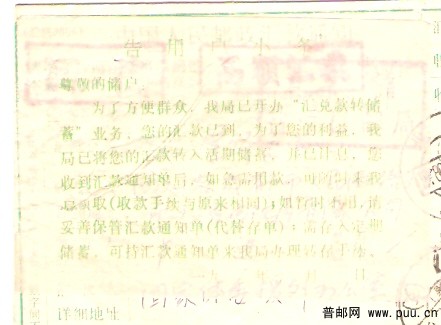 告用户小条
尊敬的储户
为了方便群众，我局已开办“汇兑款转储
蓄”业务，您的汇款已到，为了您的利益，我
局已将您的汇款转入活期储蓄，并已计息，您
收到汇款通知单后，如急需用款，可随时来我
局领取(取款手续与原来相同)；如暂时不用，请
妥善保管汇款通知单(代替存单)；需存入定期
储蓄，可持汇款通知单来我局办理转存手续。
详细地址
普邮网 www.puu.cn